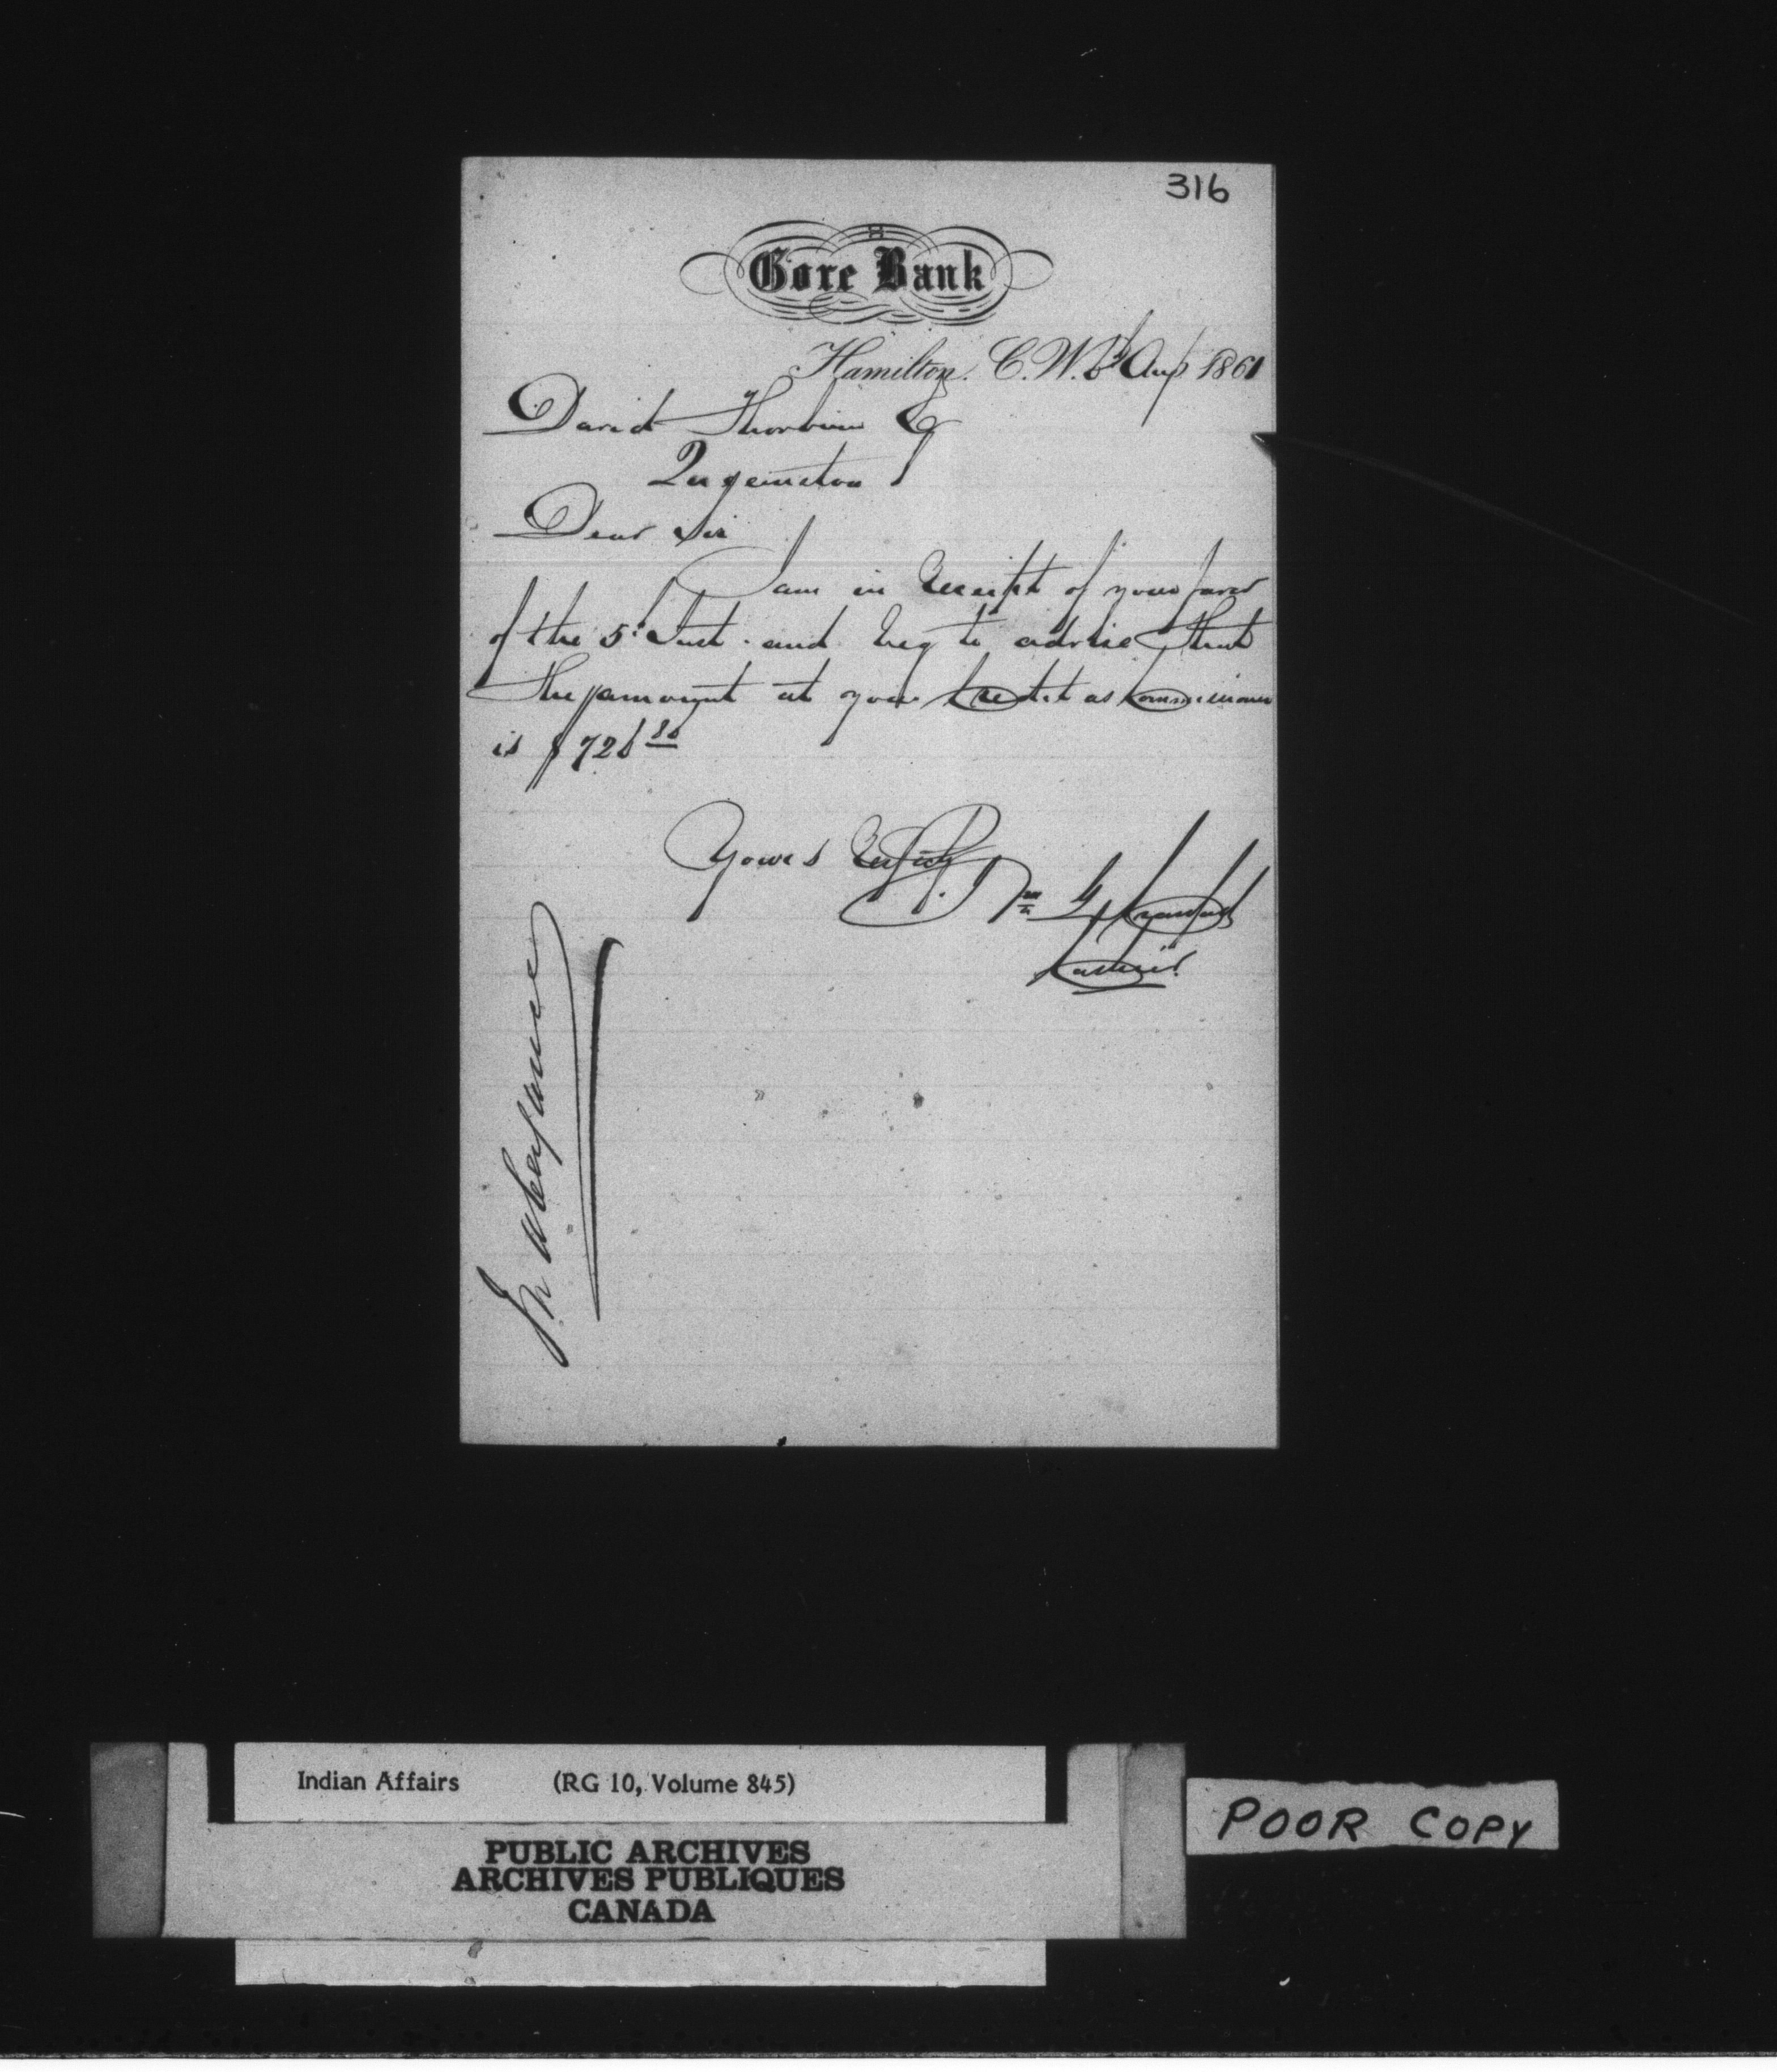 316
Gore Bank
Hamilton. C.W. 6th Aug 1861
David Thorburn Esq
Queenston
Dear Sir
I am in Receipt of your favor
of the 5th Inst. and beg to advise that
the amount at your Credit as Commissioner
is $
Yours
Wm G Crawford
Cashier
In abeyance
Indian Affairs (RG 10, Volume 845)
PUBLIC ARCHIVES
ARCHIVES PUBLIQUES
CANADA
POOR COPY